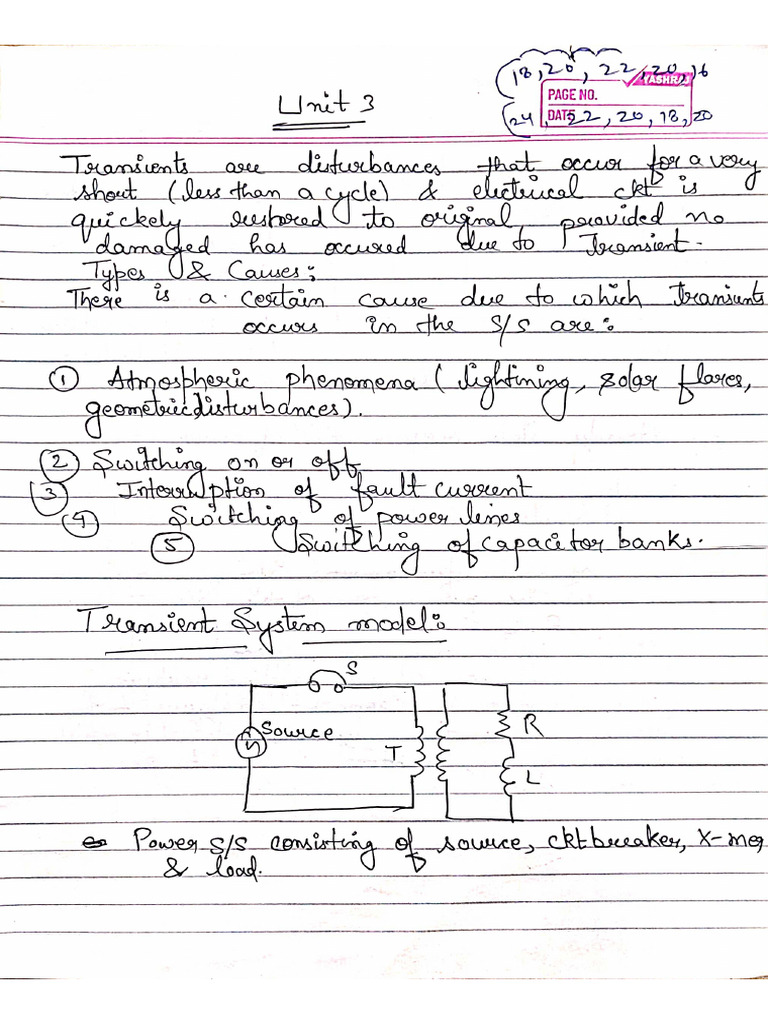 18, 20, 22, 20, 16
YASHRAJ
PAGE NO.
DATE
24, 22, 20, 18, 20
Unit 3
Transients are disturbances that occur for a very
short (less than a cycle) & electrical ckt is
quickely restored to original provided no
damaged has occured due to Transient.
Types & Causes:
There is a certain cause due to which Transients
occurs in the S/S are:
① Atmospheric phenomena (lightining, solar flares,
geometric disturbances).
② Switching on or off
③ Interruption of fault current
④ Switching of power lines
⑤ Switching of capacitor banks.
Transient System model:
S
Source
T
R
L
Power S/S consisting of source, ckt breaker, X-mer
& load.